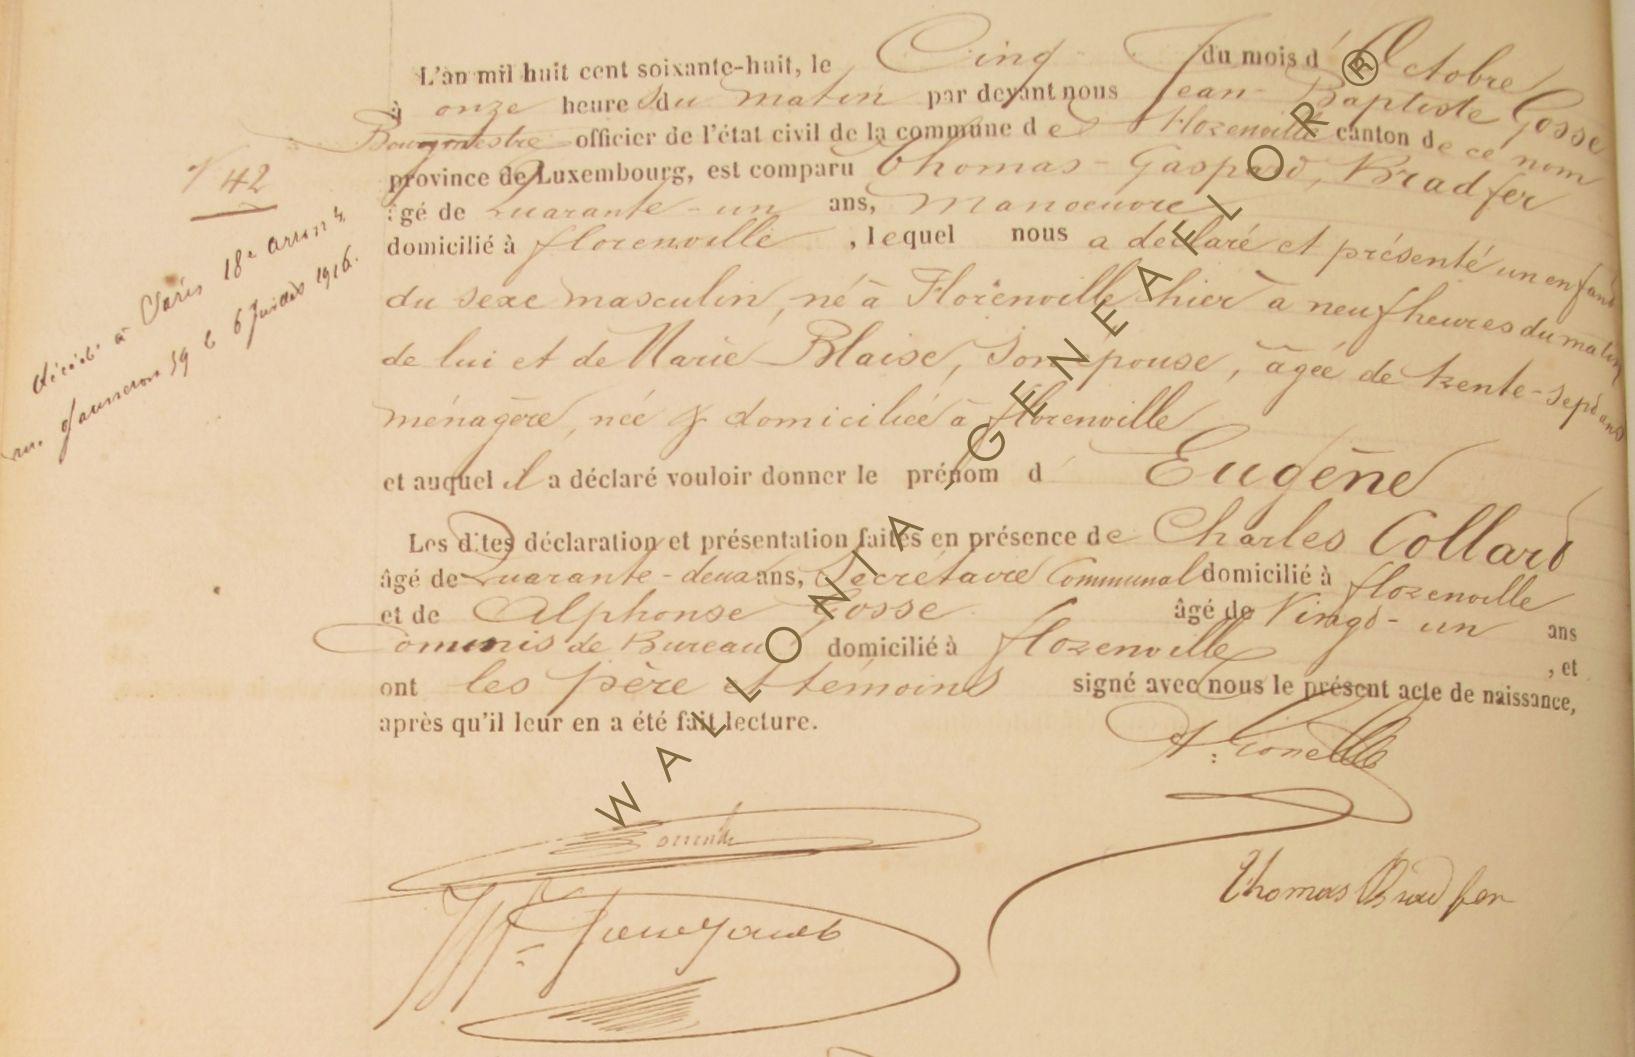 L'an mil huit cent soixante-huit, le Cinq du mois d'Octobre
à onze heures du matin par devant nous Jean-Baptiste Gosse
Bourgmestre officier de l'état civil de la commune de Florenville canton de ce nom
province de Luxembourg, est comparu Thomas-Gaspard, Bradfer
âgé de Quarante-un ans, Manoeuvre
domicilié à florenville, lequel nous a déclaré et présenté un enfant
du sexe masculin, né à Florenville hier à neuf heures du matin
de lui et de Marie Blaise, Son épouse, âgée de trente-sept ans
ménagère, née & domiciliée à florenville
et auquel il a déclaré vouloir donner le prénom d'Eugène
Les dites déclaration et présentation faites en présence de Charles Collard
âgé de Quarante-deux ans, Secrétaire Communal domicilié à florenville
et de Alphonse Gosse âgé de Vingt-un ans
Commis de Bureau domicilié à florenville, et
ont les père et témoins signé avec nous le présent acte de naissance,
après qu'il leur en a été fait lecture.
Thomas Bradfer
N° 42
décédé à Paris 18e arrondt
rue 59 le 6 Juillet 1916.
WALLONIA-GENEAFLOR®